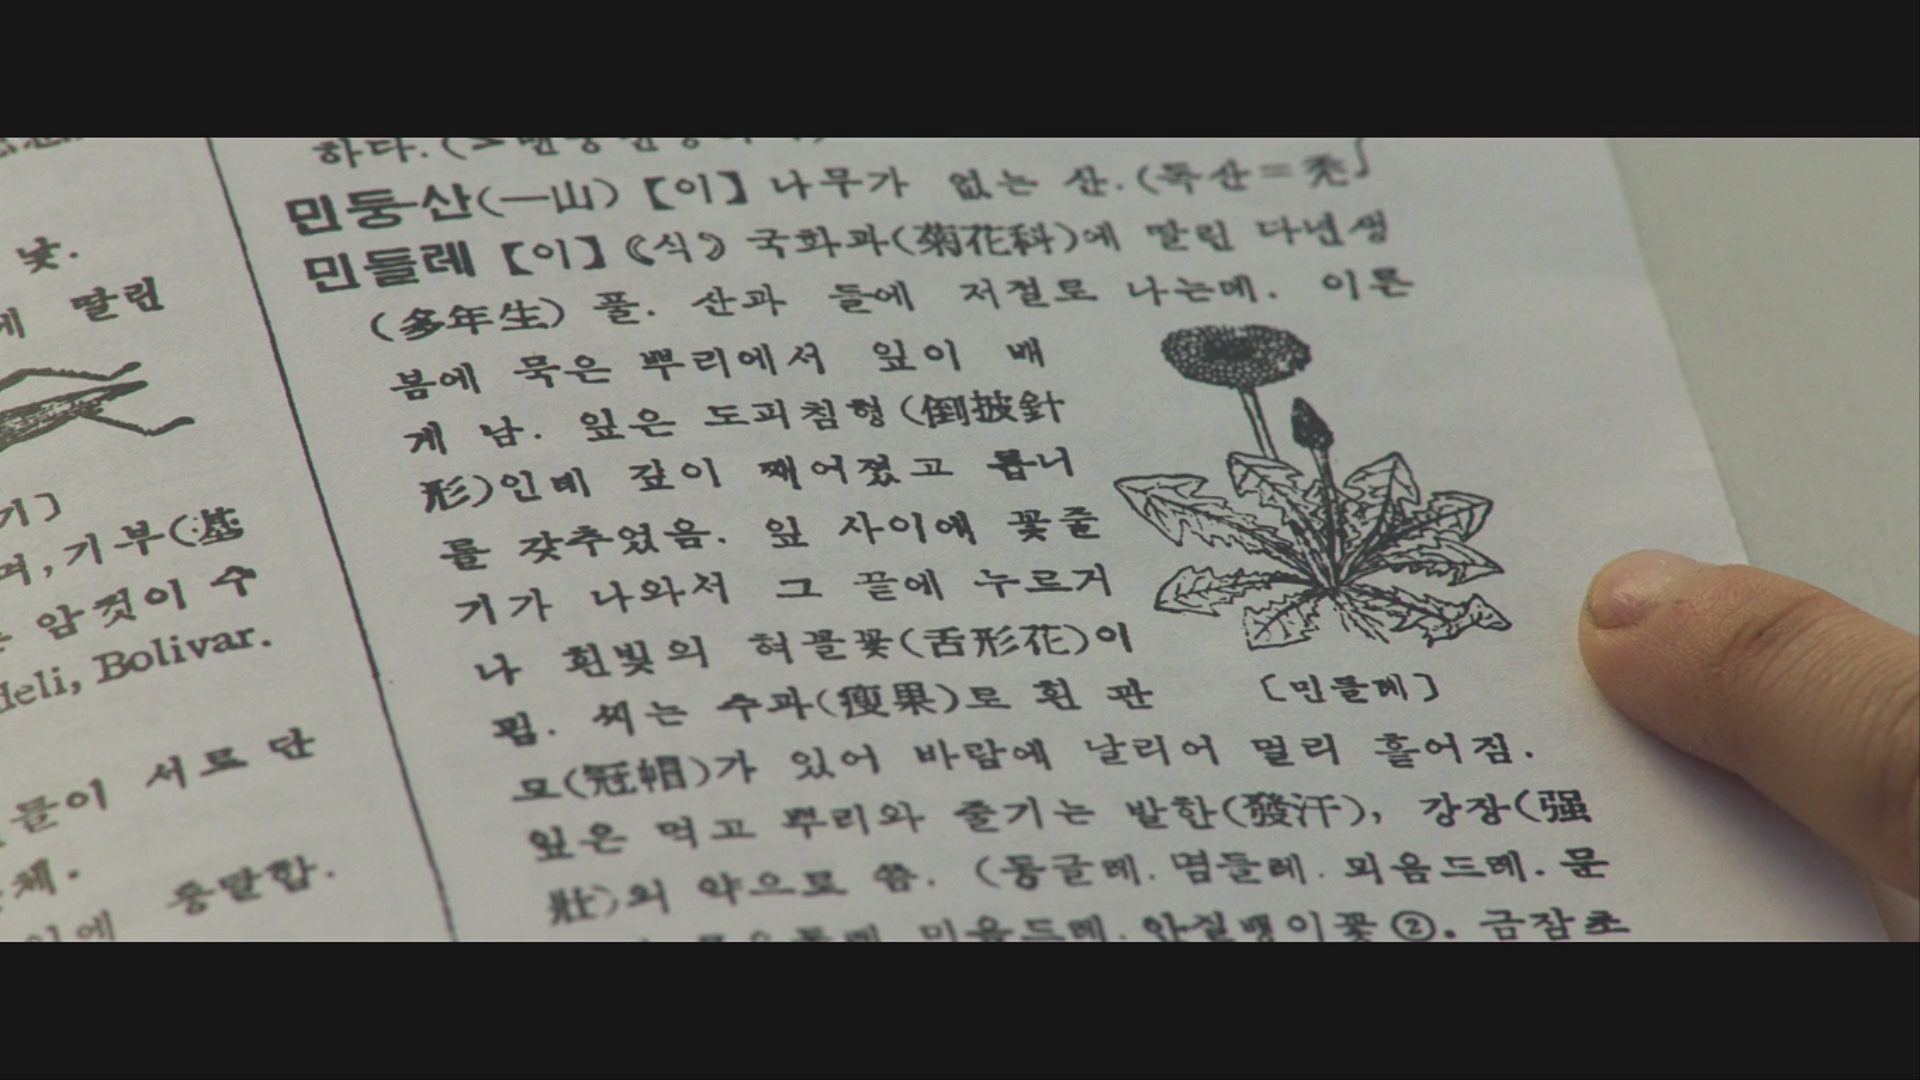 낯.
에 딸린
기〕
며, 기부(基
는 암컷이 수
Heli, Bolivar.
들이 서로 단
체.
에 중탈함.
하다.
민둥산(一山)【이】나무가 없는 산.(독산=禿
민들레【이】《식》국화과(菊花科)에 딸린 다년생
(多年生) 풀. 산과 들에 저절로 나는데. 이른
봄에 묵은 뿌리에서 잎이 배
게 남. 잎은 도피침형(倒披針
形)인데 깊이 째어졌고 톱니
를 갖추었음. 잎 사이에 꽃줄
기가 나와서 그 끝에 누르거
나 흰빛의 혀꼴꽃(舌形花)이
핌. 씨는 수과(瘦果)로 흰 관
〔민들레〕
모(冠帽)가 있어 바람에 날리어 멀리 흩어짐.
잎은 먹고 뿌리와 줄기는 발한(發汗), 강장(强
壯)의 약으로 씀. (둥글레. 멈들레. 믜음드레. 문
믜음드레. 안질뱅이꽃②. 금잠초